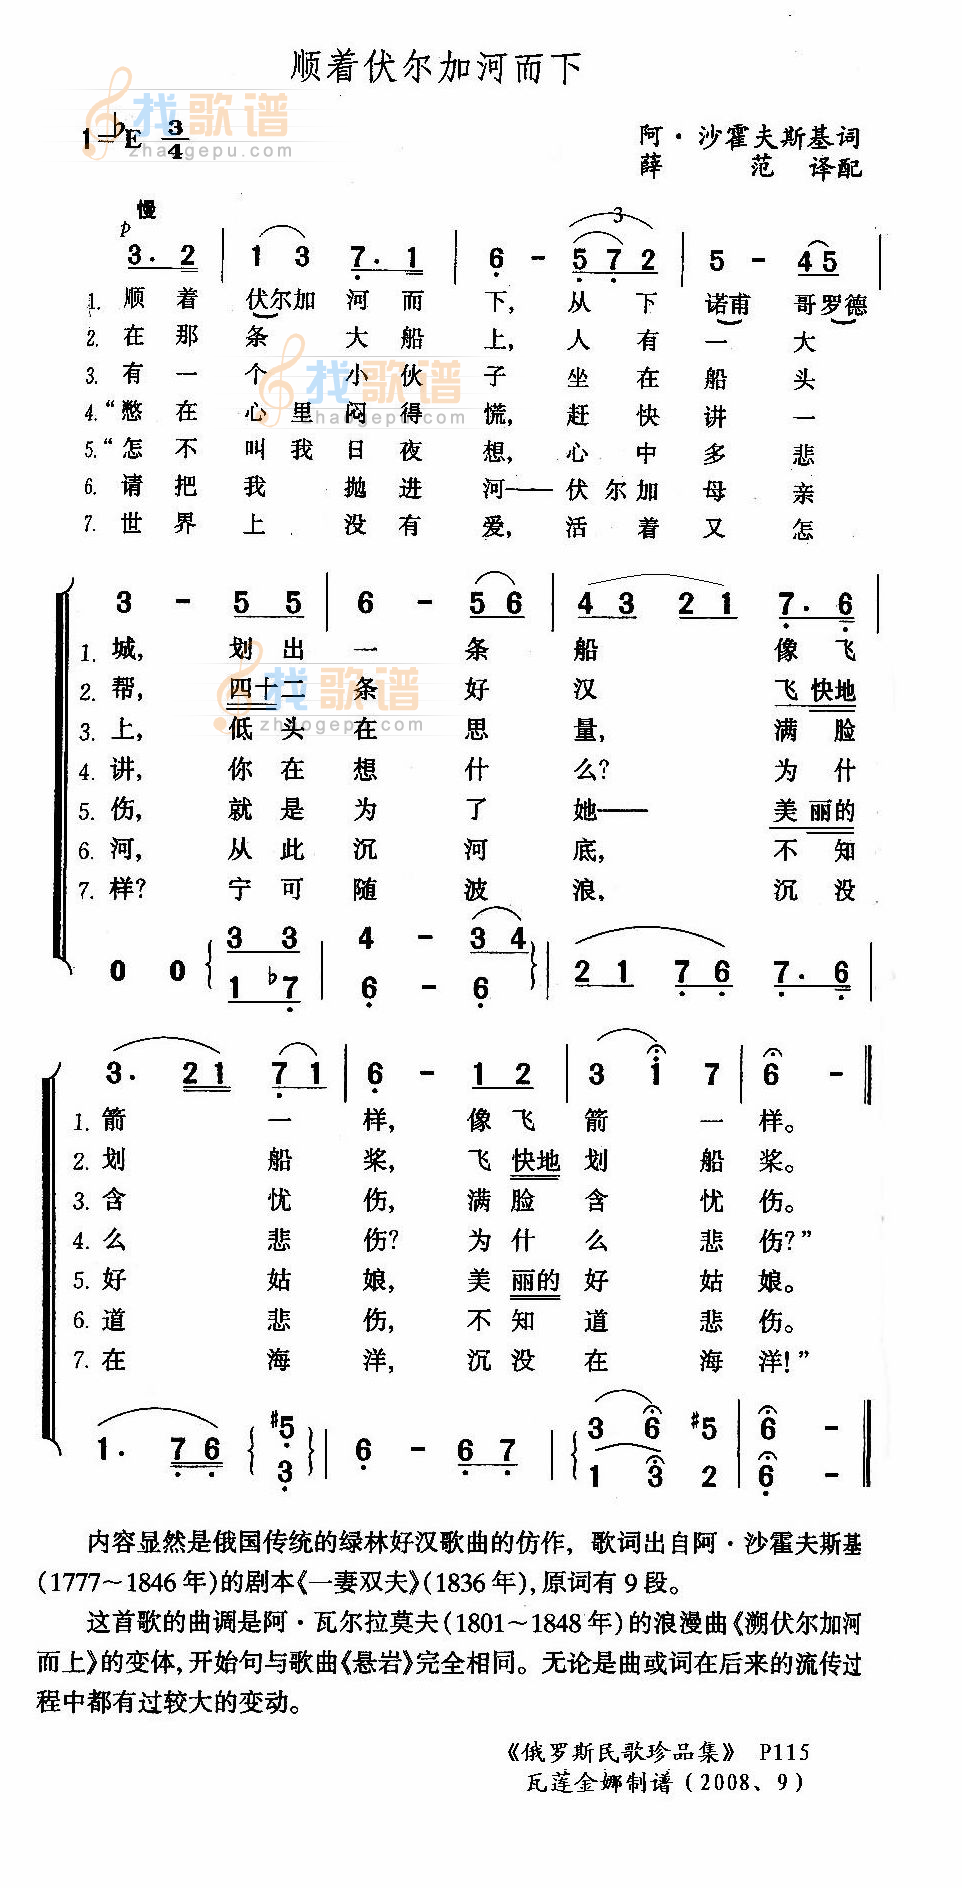 顺着伏尔加河而下
1=♭E 3/4
阿·沙霍夫斯基词
薛 范 译配
找歌谱
zhaogepu.com
慢
p
3. 2 | 1 3 7. 1 | 6 - 5 7 2 | 5 - 4 5 |
3
1. 顺着伏尔加河而下,从下诺甫哥罗德
2. 在那条大船上,人有一大
3. 有一个小伙子坐在船头
4.“憋在心里闷得慌,赶快讲一
5.“怎不叫我日夜想,心中多悲
6. 请把我抛进河——伏尔加母亲
7. 世界上没有爱,活着又怎
找歌谱
zhaogepu.com
3 - 5 5 | 6 - 5 6 | 4 3 2 1 7. 6 |
1. 城,划出一条船像飞
2. 帮,四十二条好汉飞快地
3. 上,低头在思量,满脸
4. 讲,你在想什么?为什
5. 伤,就是为了她——美丽的
6. 河,从此沉河底,不知
7. 样?宁可随波浪,沉没
找歌谱
zhaogepu.com
0 0 3 3 | 4 - 3 4 | 2 1 7 6 7. 6 |
1 ♭7 | 6 - 6
3. 2 1 7 1 | 6 - 1 2 | 3 i 7 | 6 - ‖
1. 箭一样,像飞箭一样。
2. 划船桨,飞快地划船桨。
3. 含忧伤,满脸含忧伤。
4. 么悲伤?为什么悲伤?”
5. 好姑娘,美丽的好姑娘。
6. 道悲伤,不知道悲伤。
7. 在海洋,沉没在海洋!”
1. 7 6 #5 | 6 - 6 7 | 3 6 #5 | 6 - ‖
3 | 1 3 2
内容显然是俄国传统的绿林好汉歌曲的仿作,歌词出自阿·沙霍夫斯基
(1777～1846年)的剧本《一妻双夫》(1836年),原词有9段。
这首歌的曲调是阿·瓦尔拉莫夫(1801～1848年)的浪漫曲《溯伏尔加河
而上》的变体,开始句与歌曲《悬岩》完全相同。无论是曲或词在后来的流传过
程中都有过较大的变动。
《俄罗斯民歌珍品集》 P115
瓦莲金娜制谱(2008、9)